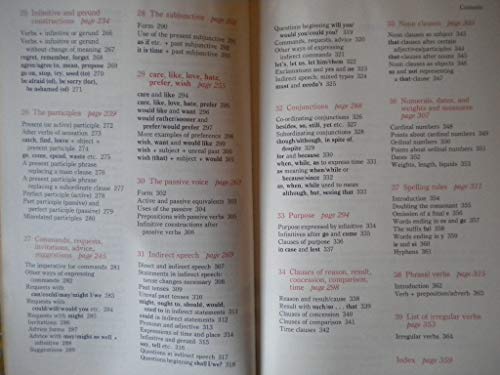 Contents
25 Infinitive and gerund
constructions page 234
Verbs + infinitive or gerund 266
Verbs + infinitive or gerund
without change of meaning 267
regret, remember, forget 268
agree/agree to, mean, propose 269
go on, stop, try, used (to) 270
be afraid (of), be sorry (for),
be ashamed (of) 271
26 The participles page 239
Present (or active) participle 272
After verbs of sensation 273
catch, find, leave + object +
present participle 274
go, come, spend, waste etc. 275
A present participle phrase
replacing a main clause 276
A present participle phrase
replacing a subordinate clause 277
Perfect participle (active) 278
Past participle (passive) and
perfect participle (passive) 279
Misrelated participles 280
27 Commands, requests,
invitations, advice,
suggestions page 245
The imperative for commands 281
Other ways of expressing
commands 282
Requests with
can/could/may/might I/we 283
Requests with
could/will/would you etc. 284
Requests with might 285
Invitations 286
Advice forms 287
Advice with may/might as well +
infinitive 288
Suggestions 289
28 The subjunctive page
Form 290
Use of the present subjunctive 291
as if etc. + past subjunctive 292
it is time + past subjunctive 293
29 care, like, love, hate,
prefer, wish page 255
care and like 294
care, like, love, hate, prefer 295
would like and want 296
would rather/sooner and
prefer/would prefer 297
More examples of preference 298
wish, want and would like 299
wish + subject + unreal past 300
wish (that) + subject + would 301
30 The passive voice page 263
Form 302
Active and passive equivalents 303
Uses of the passive 304
Prepositions with passive verbs 305
Infinitive constructions after
passive verbs 306
31 Indirect speech page 269
Direct and indirect speech 307
Statements in indirect speech:
tense changes necessary 308
Past tenses 309
Unreal past tenses 310
might, ought to, should, would,
used to in indirect statements 311
could in indirect statements 312
Pronoun and adjective 313
Expressions of time and place 314
Infinitive and gerund 315
say, tell etc. 316
Questions in indirect speech 317
Questions beginning shall I/we? 318
Questions beginning will you/
would you/could you? 319
Commands, requests, advice 320
Other ways of expressing
indirect commands 321
let's, let us, let him/them 322
Exclamations and yes and no 323
Indirect speech, mixed types 324
must and needn't 325
32 Conjunctions page 288
Co-ordinating conjunctions 326
besides, so, still, yet etc. 327
Subordinating conjunctions 328
though/although, in spite of,
despite 329
for and because 330
when, while, as to express time 331
as meaning when/while or
because/since 332
as, when, while used to mean
although, but, seeing that 333
33 Purpose page 294
Purpose expressed by infinitive 334
Infinitives after go and come 335
Clauses of purpose 336
in case and lest 337
34 Clauses of reason, result,
concession, comparison,
time page 298
Reason and result/cause 338
Result with such/so . . . that 339
Clauses of concession 340
Clauses of comparison 341
Time clauses 342
35 Noun clauses page
Noun clauses as subject 343
that-clauses after certain
adjectives/participles 344
that-clauses after nouns 345
Noun clauses as objects 346
so and not representing
a that-clause 347
36 Numerals, dates, and
weights and measures
page 307
Cardinal numbers 348
Points about cardinal numbers 349
Ordinal numbers 350
Points about ordinal numbers 351
Dates 352
Weights, length, liquids 353
37 Spelling rules page 312
Introduction 354
Doubling the consonant 355
Omission of a final e 356
Words ending in ce and ge 357
The suffix ful 358
Words ending in y 359
ie and ei 360
Hyphens 361
38 Phrasal verbs page 315
Introduction 362
Verb + preposition/adverb 363
39 List of irregular verbs
page 353
Irregular verbs 364
Index page 359